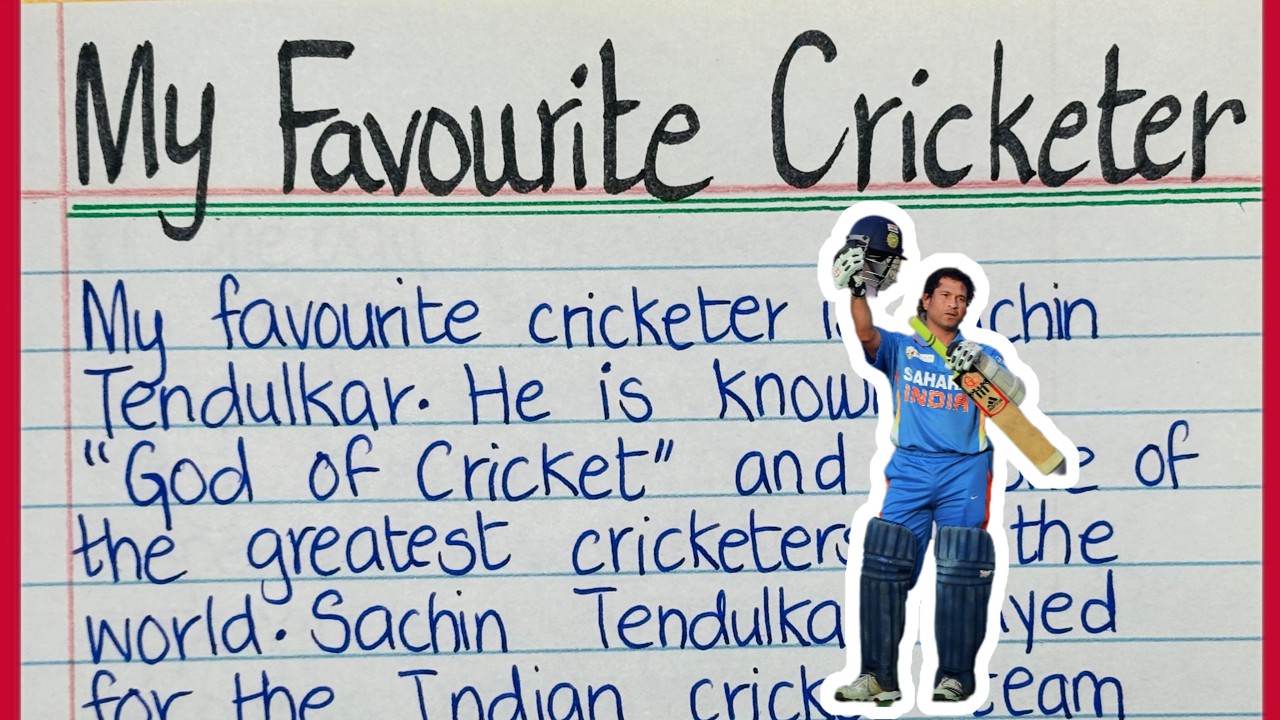 My Favourite Cricketer
My favourite cricketer chin
Tendulkar. He is know
"God of Cricket" and of
the greatest cricketers the
world. Sachin Tendulka yed
for the Indian crick team
SAHARA
INDIA